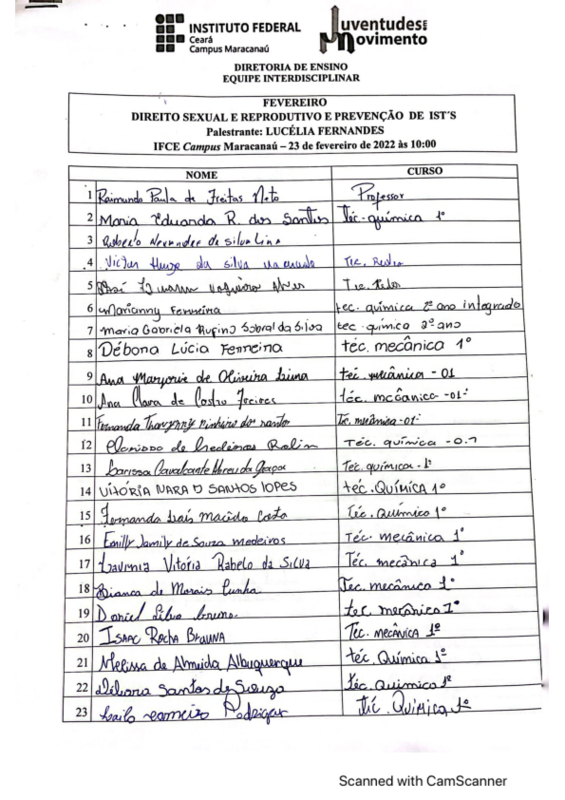 INSTITUTO FEDERAL
Ceará
Campus Maracanaú
Juventudes em
Movimento
DIRETORIA DE ENSINO
EQUIPE INTERDISCIPLINAR
FEVEREIRO
DIREITO SEXUAL E REPRODUTIVO E PREVENÇÃO DE IST'S
Palestrante: LUCÉLIA FERNANDES
IFCE Campus Maracanaú – 23 de fevereiro de 2022 às 10:00
NOME CURSO
1 Raimundo Paula de Freitas Neto Professor
2 Maria Eduarda R. dos Santos Téc. química 1º
3 Roberto Alexandre da Silva Lima
4 Victor Hugo da Silva Tec. Redes
5 Tec. Redes
6 Marianny Ferreira tec. química 2º ano integrado
7 Maria Gabriela Rufino Sobral da Silva tec química 2º ano
8 Débora Lúcia Ferreira téc. mecânica 1º
9 Ana Marjorie de Oliveira Lima téc. mecânica - 01
10 Ana Clara de Castro Freires téc. mecânica - 01
11 Fernanda Thayynny Pinheiro dos santos Tc. mecânica - 01
12 de Medeiros Rolim Téc. química - 0.1
13 Larissa Cavalcante Abreu da Graça Tec. química - 1º
14 VITÓRIA NARA D SANTOS LOPES téc. QUÍMICA 1º
15 Fernanda Laís Macêdo Costa Téc. Químico 1º
16 Emilly Jamily de Souza medeiros Téc. mecânica 1º
17 Lavinnia Vitória Rabelo da Silva Téc. mecânica 1º
18 Bianca de Morais Cunha Tec. mecânica 1º
19 Daniel Silva tec mecânica 1º
20 ISAAC ROCHA BRAUNA Téc. mecânica 1º
21 Melissa de Almeida Albuquerque téc. Química 1º
22 Débora Santos de Souza téc. Química 1º
23 Carneiro Rodrigues Téc. Química 1º
Scanned with CamScanner